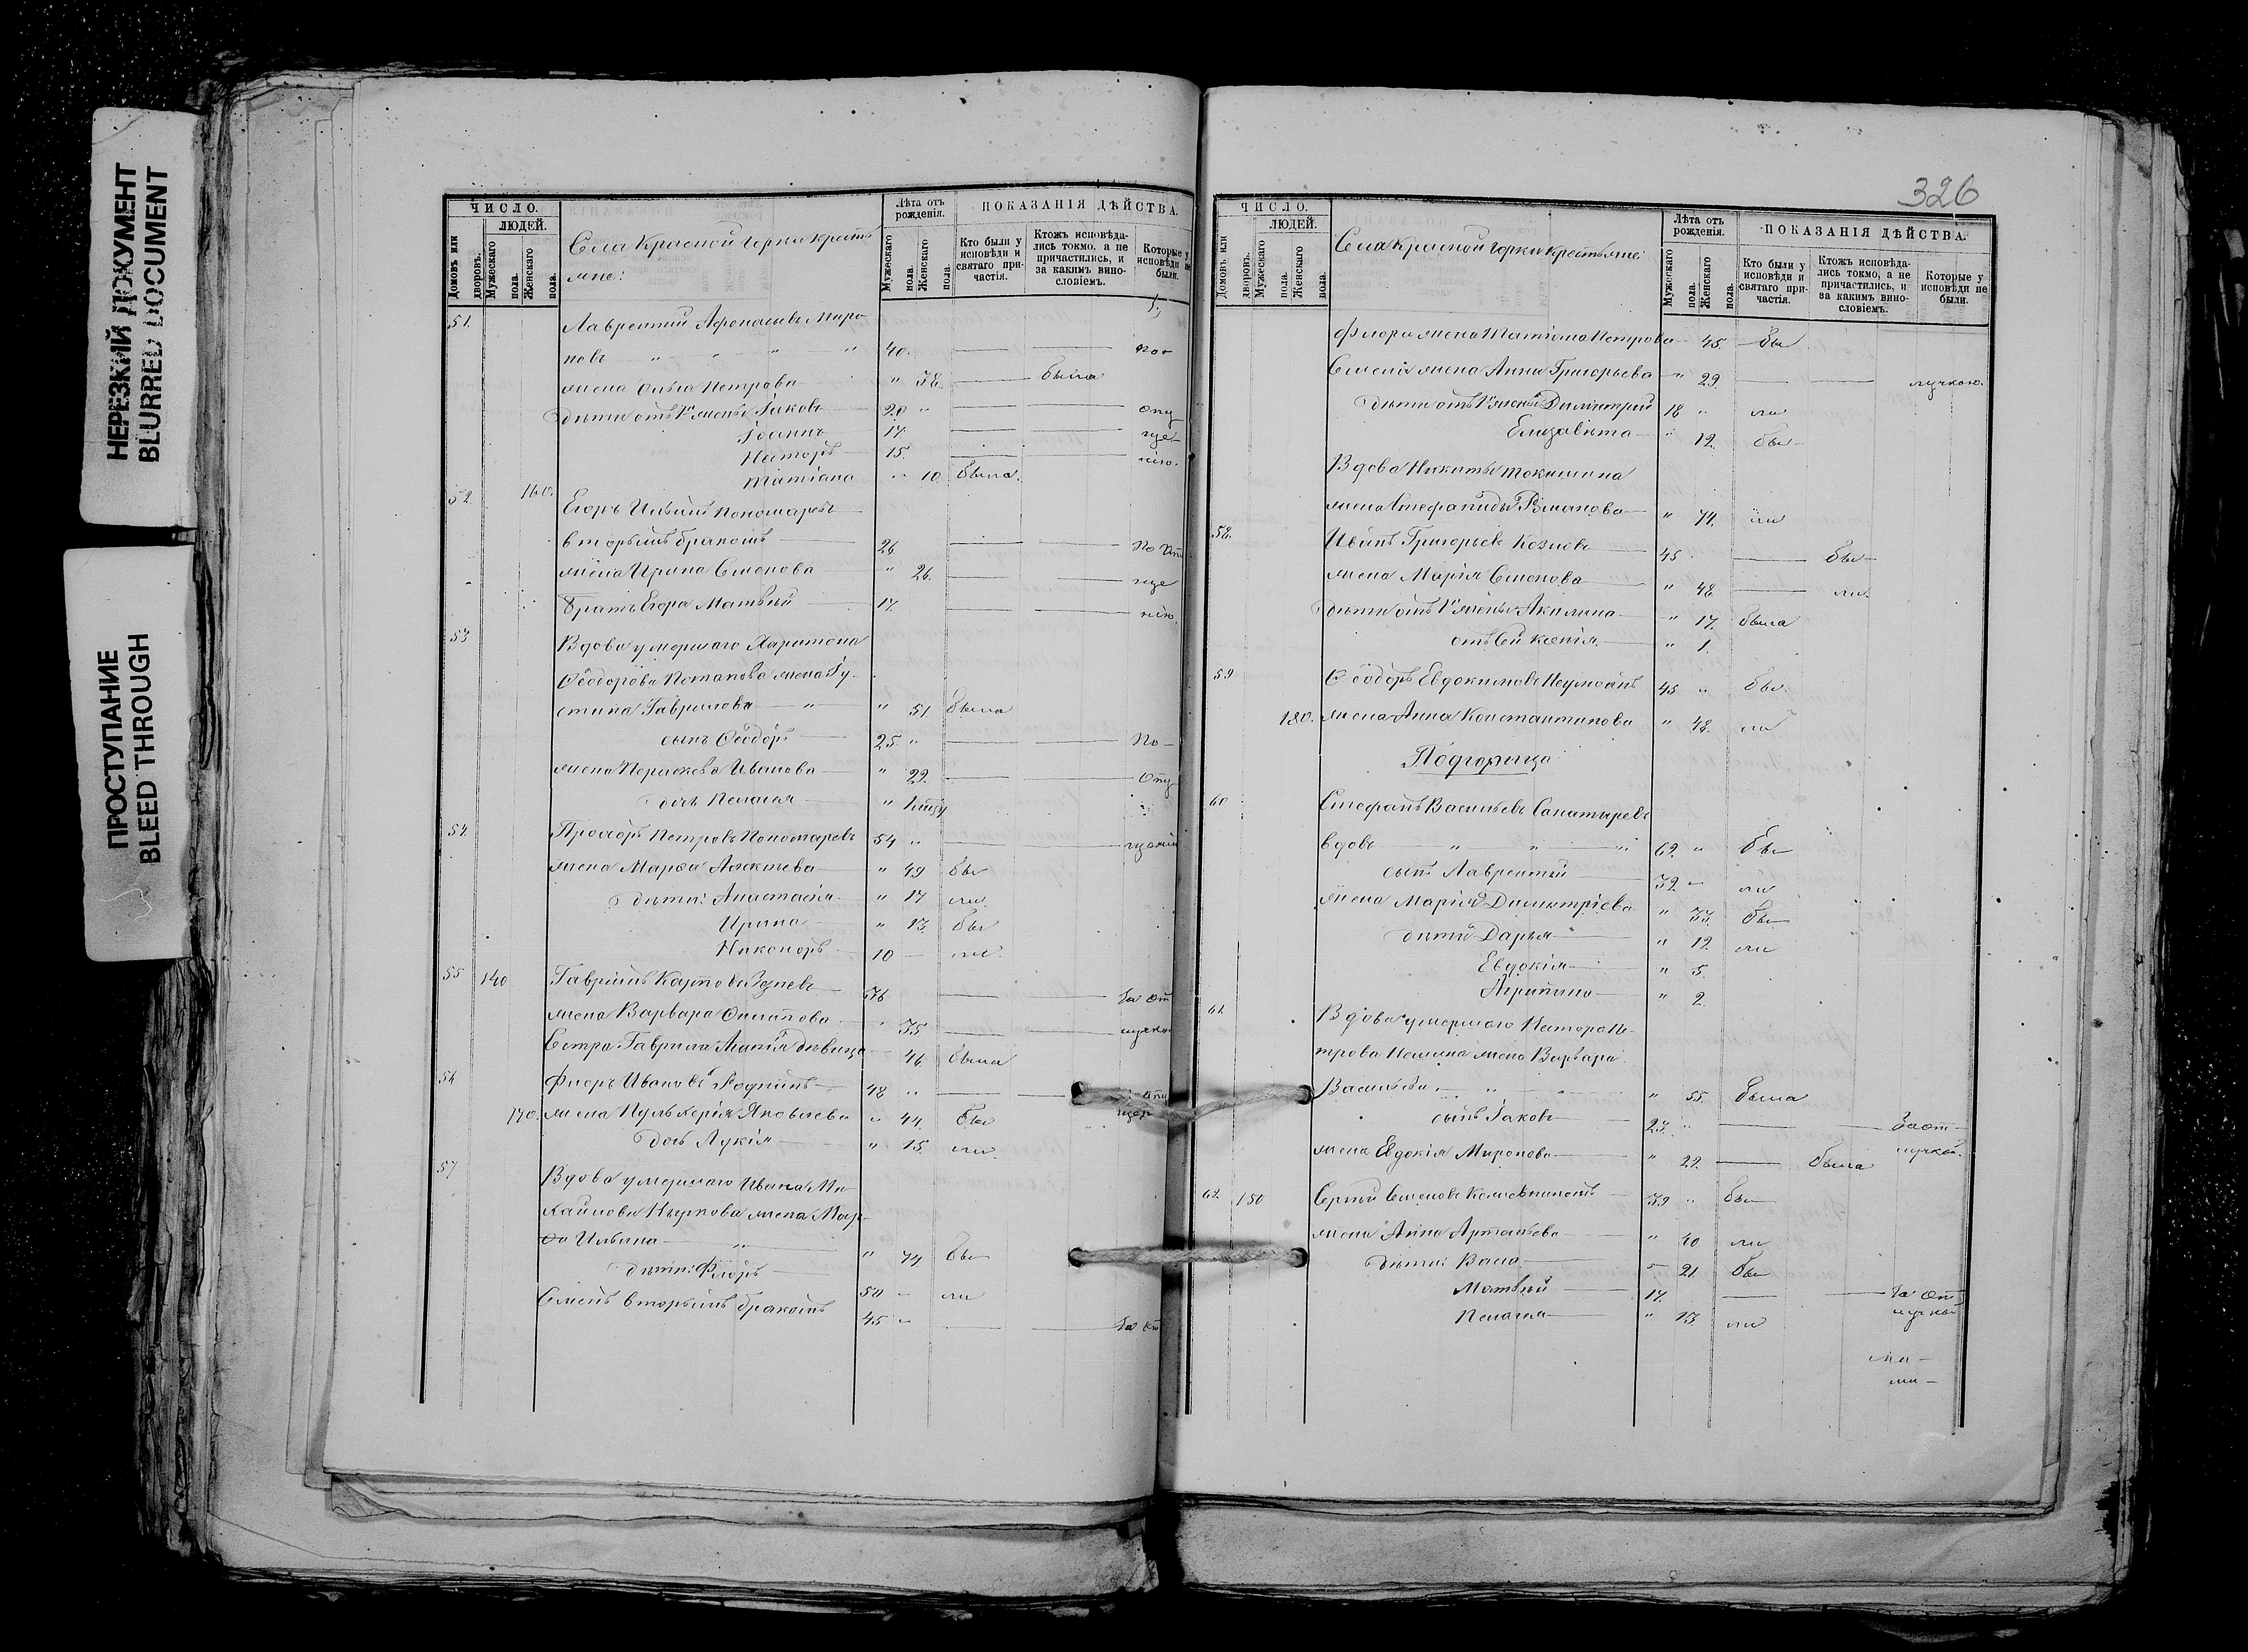 НЕРЕЗКИЙ ДОКУМЕНТ
BLURRED DOCUMENT
ПРОСТУПАНИЕ
BLEED THROUGH
ЧИСЛО.
ЛЮДЕЙ.
Домовъ или дворовъ.
Мужескаго пола.
Женскаго пола.
Села Красной Горки кресть
яне:
Лѣта отъ рожденія.
Мужескаго пола.
Женскаго пола.
ПОКАЗАНІЯ ДѢЙСТВА.
Кто были у исповѣди и святаго причастія.
Ктожъ исповѣдались токмо, а не причастились, и за какимъ винословіемъ.
Которые у исповѣди не были.
51. Лаврентій Афонасьевъ Миро
новъ 40. по
жена Ольга Петрова " 38. была
дѣти отъ 1й жены Іаковъ 20 " опу
Іоаннъ 17. ще
Несторъ 15 нію.
Татіана " 10 была.
52. 160. Егоръ Ильинъ Пономаревъ
вторымъ бракомъ 26. по Опу
жена Ирина Семенова " 26. ще
братъ Егора Матвѣй 17. нію.
53 Вдова умершаго Харитона
Ѳеодорова Потапова жена Іу
стина Гаврилова " " 51 была
сынъ Ѳеодоръ 25. " По
жена Параскева Иванова " 22. Опу
дочь Пелагея "
54. Прохоръ Петровъ Пономаревъ 54 " щенію
жена Марѳа Алексѣева " 49 бы
дѣти: Анастасія " 17 ли.
Ирина " 13. бы
Никаноръ 10 ли.
55 140 Гавріилъ 36 За от
жена Варвара " 35. лучко
Сестра Гаврила дѣвица 46. была
56 Флоръ Ивановъ Родинъ 48 " опу
170. жена Пульхерія Яковлева " 44. бы
дочь Лукія " 15. ли.
57 Вдова умершаго Ивана Ми
хайлова жена Мар
ѳа Ильина " " 74 бы
дѣти: Флоръ 50 ли
Семенъ вторымъ бракомъ 45 " За от
326
ЧИСЛО.
ЛЮДЕЙ.
Домовъ или дворовъ.
Мужескаго пола.
Женскаго пола.
Села Красной Горки крестьяне:
Лѣта отъ рожденія.
Мужескаго пола.
Женскаго пола.
ПОКАЗАНІЯ ДѢЙСТВА.
Кто были у исповѣди и святаго причастія.
Ктожъ исповѣдались токмо, а не причастились, и за какимъ винословіемъ.
Которые у исповѣди не были.
Флора жена Татіана Петрова 45. бы
Семена жена Анна Григорьева " 29. лучкою.
дѣти отъ 1й жены Димитрій 18 " ли
Елизавета " 12. бы
Вдова Никиты
жена Степанида Романова " 74. ли
58. Иванъ Григорьевъ Козловъ 45 бы
жена Марія Семенова " 48 ли.
дѣти отъ 1й жены Акилина " 17. была
отъ сей Ксенія " 1.
59 Ѳеодоръ Евдокимовъ 45 " бы.
180. жена Анна Константинова " 48. ли
Подгорица
60 Стефанъ Васильевъ
вдовъ " " " 62. " бы
сынъ Лаврентій 32. ли
жена Марія Димитріева " 33. бы
дѣти: Дарья " 12. ли
Евдокія " 5.
Агрипина " 2.
61. Вдова умершаго Нестора Пе
трова жена Варвара
Васильева " " " 55. была
сынъ Іаковъ 23. " За от
лучкой.
жена Евдокія Миронова " 22. была
62. 150 Сергѣй Семеновъ 39 " бы
жена Анна Артемьева " 40 ли
дѣти: Васса " 21. бы
Матвѣй 17. За от
лучкой
Пелагея " 13. ли